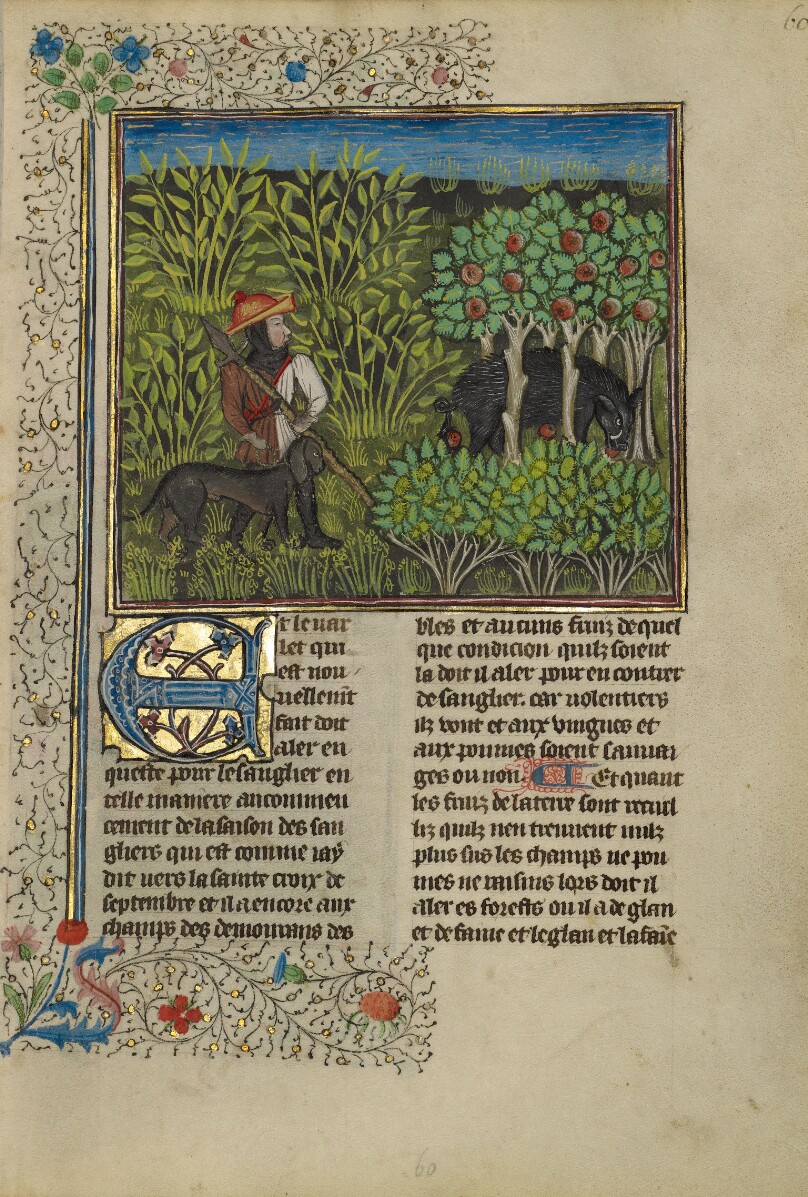 60
Et le var
let qui
est nou
uellem̄t
fait doit
aler en
queste pour le sanglier en
telle maniere au commen
cement de la saison des san
gliers qui est comme iay
dit vers la sainte croix de
septembre et il a encore aux
champs des demourans des
bles et aucuns fruiz de quel
que condicion quilz soient
la doit il aler pour encontrer
de sanglier. car volentiers
ilz vont et aux vingnes et
aux pommes soient sauuai
ges ou non. Et quant
les fruiz de la terre sont recueil
liz quilz nen treuuent nulz
plus sus les champs ne pom
mes ne raisins lors doit il
aler es forests ou il a de glan
et de faine et le glan et la faīe
60